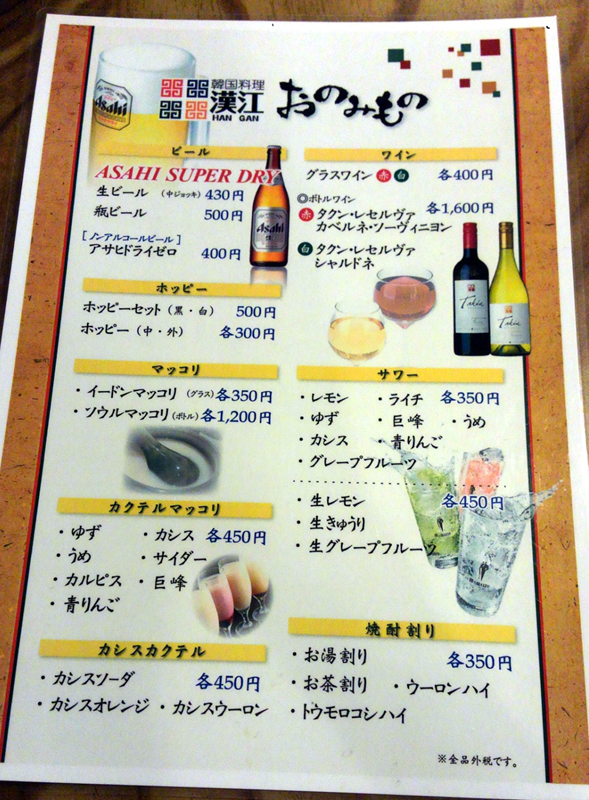 韓国料理
漢江
HAN GAN
おのみもの
ビール
ASAHI SUPER DRY
生ビール (中ジョッキ) 430円
瓶ビール 500円
[ノンアルコールビール]
アサヒドライゼロ 400円
ホッピー
ホッピーセット (黒・白) 500円
ホッピー (中・外) 各300円
マッコリ
・イードンマッコリ (グラス) 各350円
・ソウルマッコリ (ボトル) 各1,200円
カクテルマッコリ
・ゆず ・カシス 各450円
・うめ ・サイダー
・カルピス ・巨峰
・青りんご
カシスカクテル
・カシスソーダ 各450円
・カシスオレンジ ・カシスウーロン
ワイン
グラスワイン 赤 白 各400円
◎ボトルワイン 各1,600円
赤 タクン・レセルヴァ
カベルネ・ソーヴィニヨン
白 タクン・レセルヴァ
シャルドネ
サワー
・レモン ・ライチ 各350円
・ゆず ・巨峰 ・うめ
・カシス ・青りんご
・グレープフルーツ
・生レモン 各450円
・生きゅうり
・生グレープフルーツ
焼酎割り
・お湯割り 各350円
・お茶割り ・ウーロンハイ
・トウモロコシハイ
※全品外税です。
Asahi
Asahi